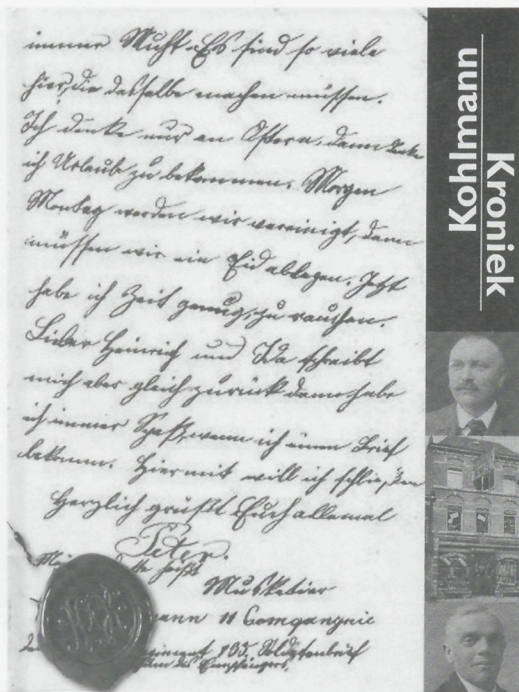 immer Muht. Es sind so viele
hier, die dasselbe machen müssen.
Ich denke nur an Ostern, dann denke
ich Urlaub zu bekommen. Morgen
Montag werden wir vereinigt, dann
müssen wir ein Eid ablegen. Jetzt
habe ich Zeit genug, zu rauchen.
Lieber Heinrich und Ida schreibt
mich aber gleich zurück dann habe
ich immer Spaß, wenn ich einen Brief
bekomm. Hiermit will ich schließen
Herzlich grüßt Euch allemal
Peter.
heißt
Musketier
mann 11 Compagnie
Regiment 135. Soldatenbrief
des Empfängers.
Kohlmann
Kroniek